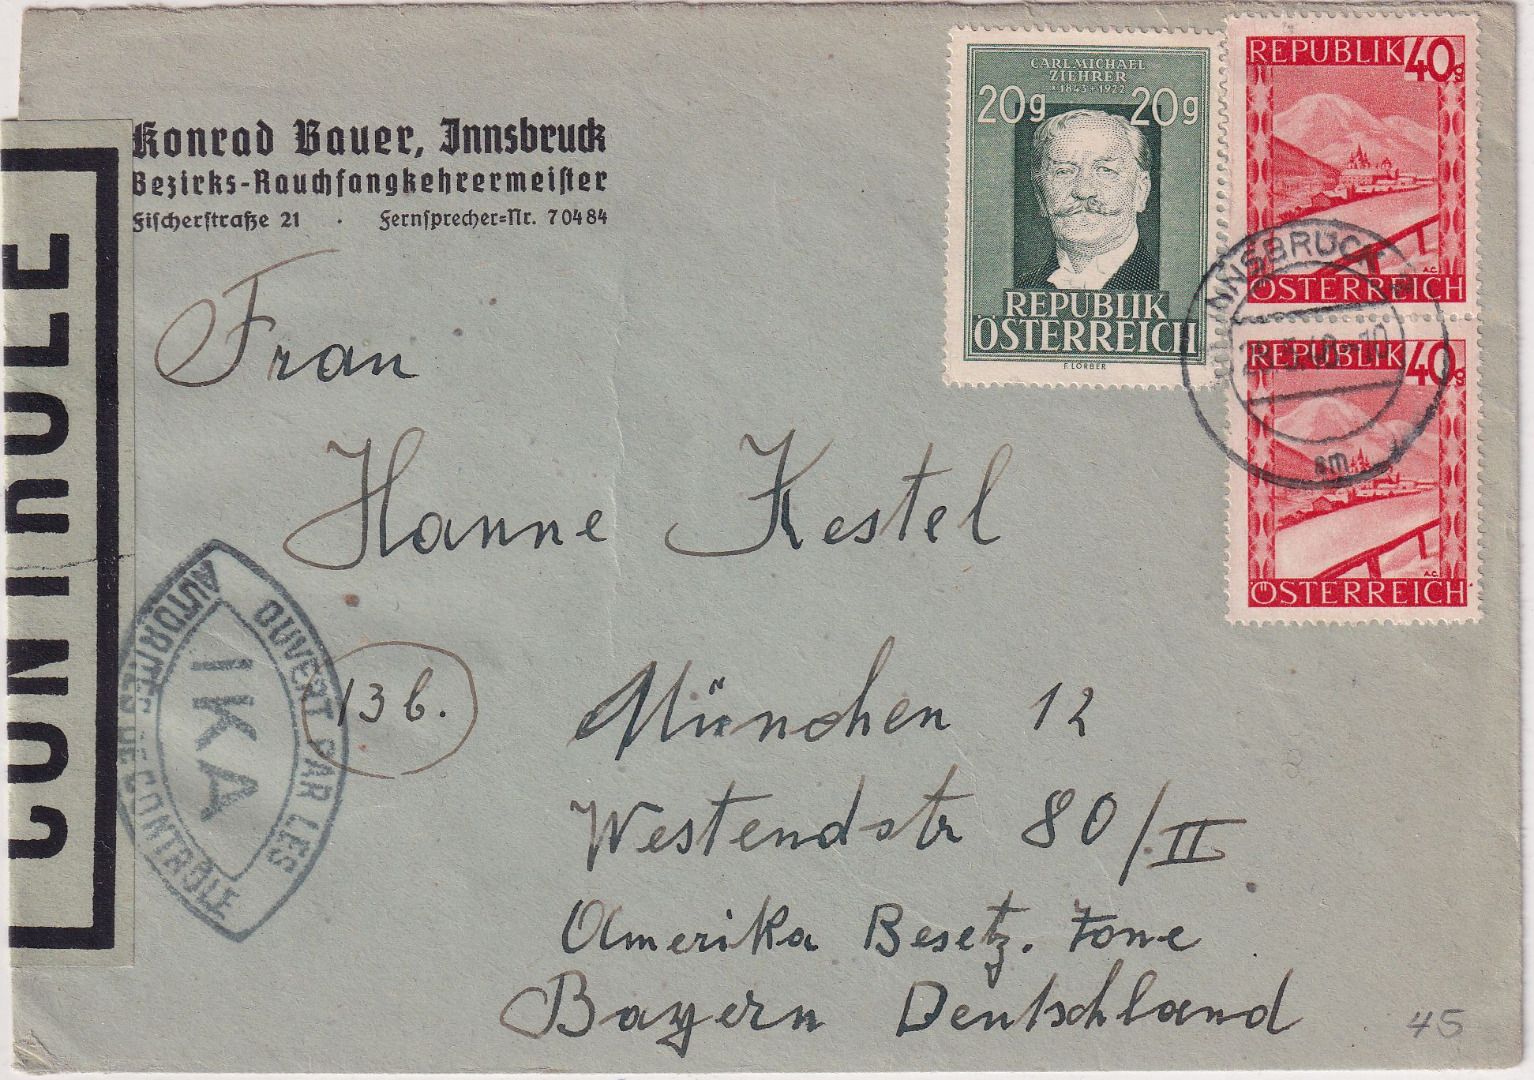 Konrad Bauer, Innsbruck
Bezirks-Rauchfangkehrermeister
Fischerstraße 21 · Fernsprecher-Nr. 70484
CARL MICHAEL
ZIEHRER
*1843+1922
20g 20g
REPUBLIK
ÖSTERREICH
F. LORBER
REPUBLIK 40g
A.C.
ÖSTERREICH
REPUBLIK 40g
A.C.
ÖSTERREICH
INNSBRUCK
sm
CONTROLE
OUVERT PAR LES
AUTORITÉS DE CONTRÔLE
IKA
Frau
Hanne Kestel
13b. München 12
Westendstr 80/II
Amerika Besetz. Zone
Bayern Deutschland
45